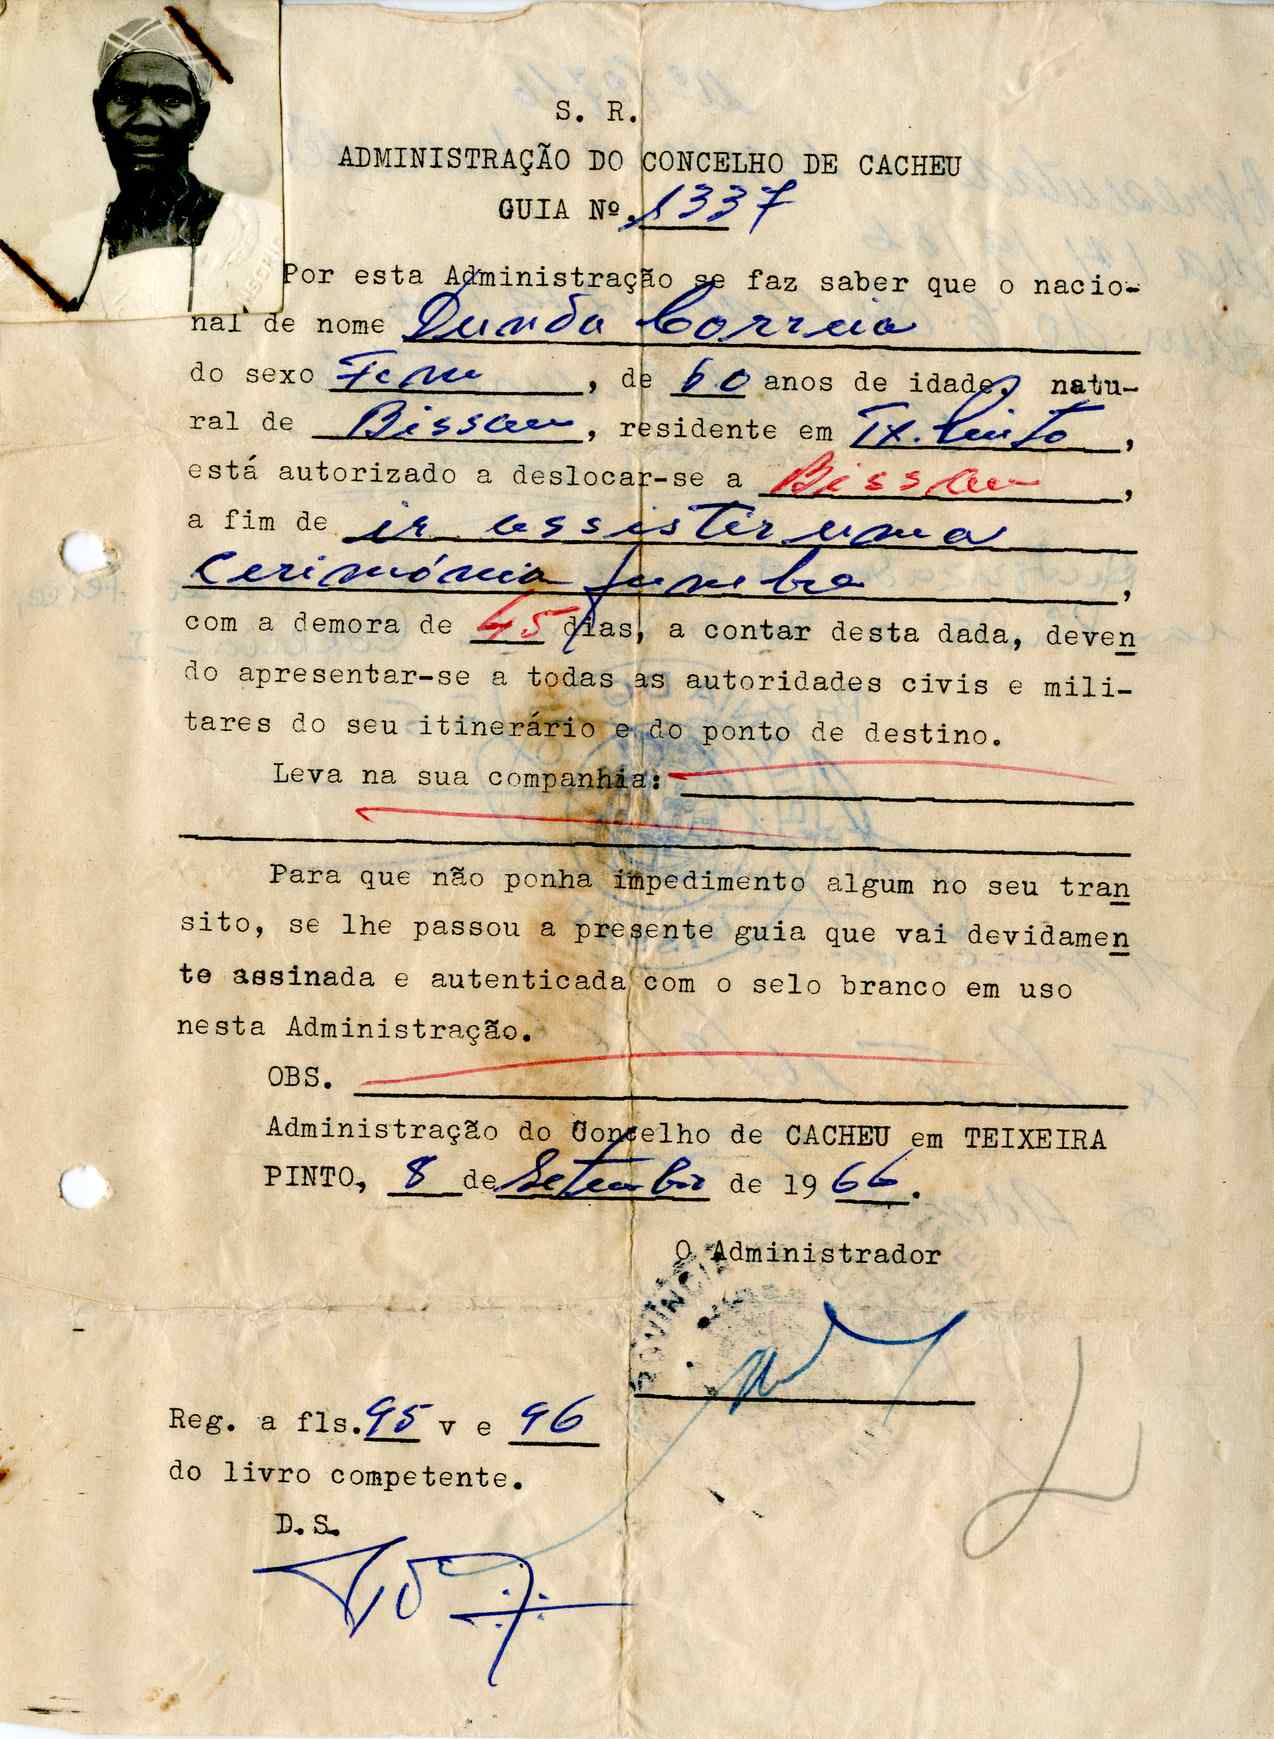 S. R.
ADMINISTRAÇÃO DO CONCELHO DE CACHEU
GUIA Nº 1337
Por esta Administração se faz saber que o nacio-
nal de nome Dunda Correia
do sexo Fem, de 60 anos de idade, natu-
ral de Bissau, residente em Tx. Pinto,
está autorizado a deslocar-se a Bissau,
a fim de ir assistir uma
cerimónia funebre,
com a demora de 45 dias, a contar desta dada, deven
do apresentar-se a todas as autoridades civis e mili-
tares do seu itinerário e do ponto de destino.
Leva na sua companhia:
Para que não ponha impedimento algum no seu tran
sito, se lhe passou a presente guia que vai devidamen
te assinada e autenticada com o selo branco em uso
nesta Administração.
OBS.
Administração do Concelho de CACHEU em TEIXEIRA
PINTO, 8 de Setembro de 1966.
O Administrador
PROVINCIA
Reg. a fls. 95 v e 96
do livro competente.
D.S.